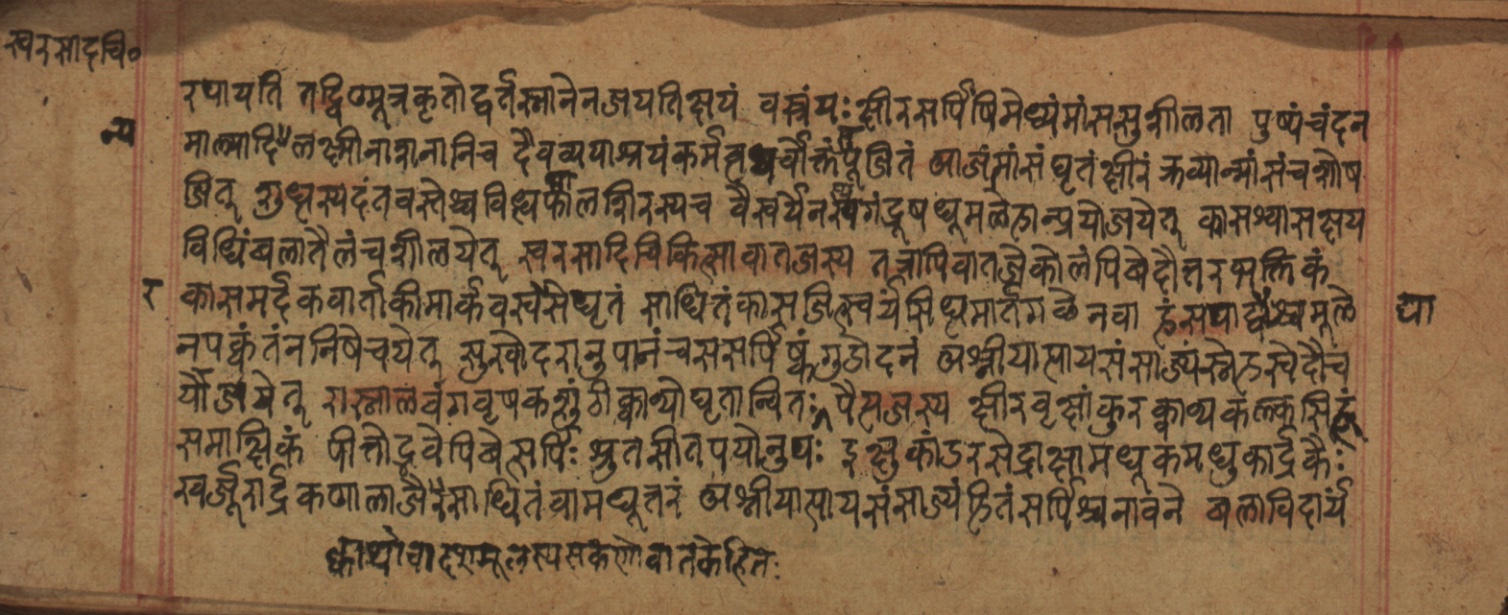 स्वरसादचि०
रपायति तद्विण्मूत्रकृतोद्वर्तस्नानेनजयतिक्षयं वस्त्रंयः क्षीरसर्पिषिमेध्यंमांससुशीलता पुष्यंचंदन
न्य
माल्यादि लक्ष्मीनाशनानिच दैवव्यपाश्रयंकर्म पूजितं आजंमांसंघृतंक्षीरंक्रव्यान्मांसंचशोष
जित् दंतवस्तेश्च शिरस्यच वैस्वर्येनस्य गंडूषधूमलेहान्प्रयोजयेत् कासश्वासक्षय
विधिंबलातैलंचशीलयेत् स्वरसादिचिकित्सावातजस्य तत्रापिवातजेकोलंपिबेदौत्तरभक्तिकं
र कासमर्दकवार्ताकीमार्कवस्वेसेघृतं साधितंकासजित्स्वर्यसिधमार्तगळेनवा हंसपा मूले या
नपक्वंतंननिषेचयेत् सुखोदरानुपानंचससर्पिष्कंगुडोदनं अश्नीयात्पायसंसाज्यंस्नेहस्वेदौच
र्योजयेत् रास्नालवंगवृषकशुंठीक्वाथोघृतान्वितः पैत्तजस्य क्षीरवृक्षांकुरक्वाथकल्कसिद्धं
समाक्षिकं पीत्तोद्भवेपिबेत्सर्पिः श्रुतसीतपयोनुपः इक्षुकांडरसेद्राक्षामधूकमधुकार्द्रकैः
खर्जूरार्द्रककणालाजैः साधितंवामधूतरं अश्नीयात्पायसंसाज्यंहितंसर्पिश्चनावने बलाविदार्य
क्वाथोवादशमूलस्यसकणोवातकेहितः